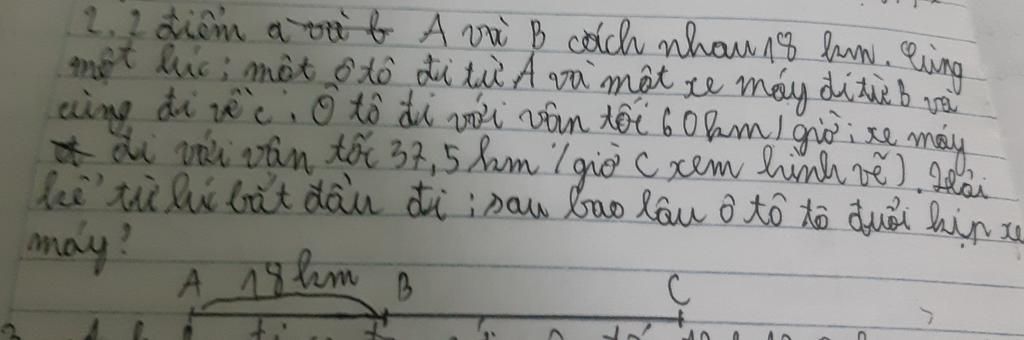 2. 2 điểm a và b A và B cách nhau 18 km. Cùng
một lúc; một ô tô đi từ A và một xe máy đi từ B và
cùng đi về C. Ô tô đi với vân tốc 60km/giờ; xe máy
đi với vân tốc 37,5 km/giờ (xem hình vẽ). Hỏi
kể từ lúc bắt đầu đi; sau bao lâu ô tô tô đuổi kịp xe
máy?
A 18km B C